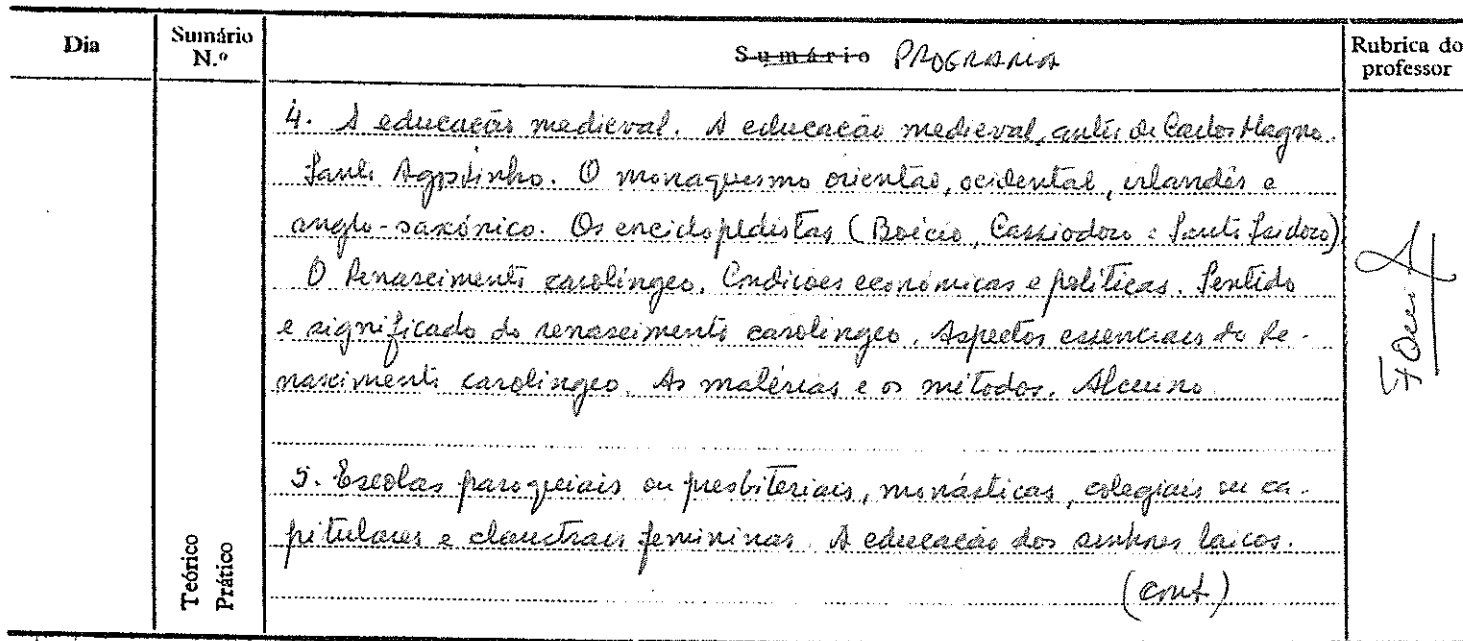 Dia
Sumário N.º
Sumário PROGRAMA
Rubrica do professor
4. A educação medieval. A educação medieval, antes de Carlos Magno.
Santo Agostinho. O monaquismo oriental, ocidental, irlandês e
anglo-saxónico. Os enciclopedistas (Boécio, Cassiodoro e Santo Isidoro)
O Renascimento carolíngeo. Condições económicas e políticas. Sentido
e significado do renascimento carolíngeo. Aspectos essenciais do Re-
nascimento carolíngeo. As matérias e os métodos. Alcuino.
5. Escolas paroquiais ou presbiteriais, monásticas, colegiais ou ca-
pitulares e claustrais femininas. A educação dos senhores laicos.
(cont.)
Teórico
Prático